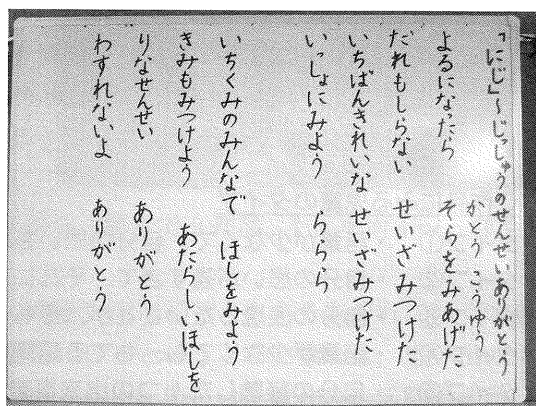 「にじ」～じっしゅうのせんせいありがとう
かとう こうゆう
よるになったら そらをみあげた
だれもしらない せいざみつけた
いちばんきれいな せいざみつけた
いっしょにみよう ららら
いちくみのみんなで ほしをみよう
きみもみつけよう あたらしいほしを
りなせんせい ありがとう
わすれないよ ありがとう